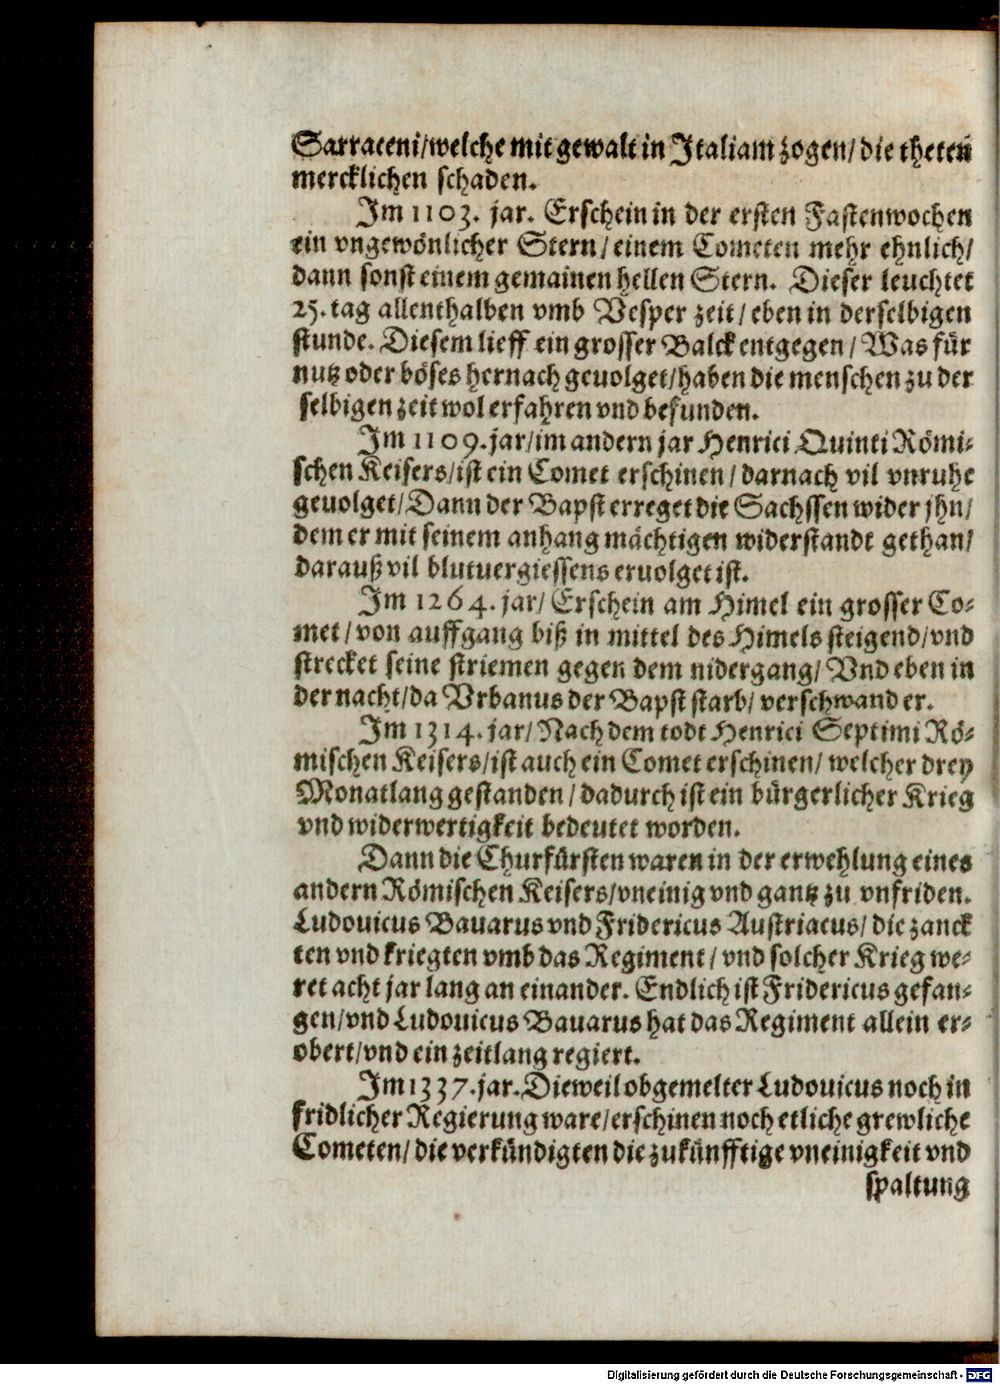 Sarraceni/welche mit gewalt in Italiam zogen/ die theten
mercklichen schaden.
Im 1103. jar. Erschein in der ersten Fastenwochen
ein vngewönlicher Stern/ einem Cometen mehr ehnlich/
dann sonst einem gemainen hellen Stern. Dieser leuchtet
25. tag allenthalben vmb Vesper zeit/ eben in derselbigen
stunde. Diesem lieff ein grosser Balck entgegen/ Was für
nutz oder böses hernach geuolget/haben die menschen zu der
selbigen zeit wol erfahren vnd befunden.
Im 1109. jar/im andern jar Henrici Quinti Römi-
schen Keisers/ist ein Comet erschinen/ darnach vil vnruhe
geuolget/Dann der Bapst erreget die Sachssen wider jhn/
dem er mit seinem anhang mächtigen widerstandt gethan/
darauß vil blutuergiessens eruolget ist.
Im 1264. jar/ Erschein am Himel ein grosser Co-
met/ von auffgang biß in mittel des Himels steigend/vnd
strecket seine striemen gegen dem nidergang/ Vnd eben in
der nacht/da Vrbanus der Bapst starb/ verschwand er.
Im 1314. jar/ Nach dem todt Henrici Septimi Rö-
mischen Keisers/ist auch ein Comet erschinen/ welcher drey
Monat lang gestanden/ dadurch ist ein bürgerlicher Krieg
vnd widerwertigkeit bedeutet worden.
Dann die Churfürsten waren in der erwehlung eines
andern Römischen Keisers/vneinig vnd gantz zu vnfriden.
Ludouicus Bauarus vnd Fridericus Austriacus/ die zanck
ten vnd kriegten vmb das Regiment/ vnd solcher Krieg we-
ret acht jar lang an einander. Endlich ist Fridericus gefan-
gen/vnd Ludouicus Bauarus hat das Regiment allein er-
obert/vnd ein zeitlang regiert.
Im 1337. jar. Dieweil obgemelter Ludouicus noch in
fridlicher Regierung ware/erschinen noch etliche grewliche
Cometen/ die verkündigten die zukünfftige vneinigkeit vnd
spaltung
Digitalisierung gefördert durch die Deutsche Forschungsgemeinschaft - DFG